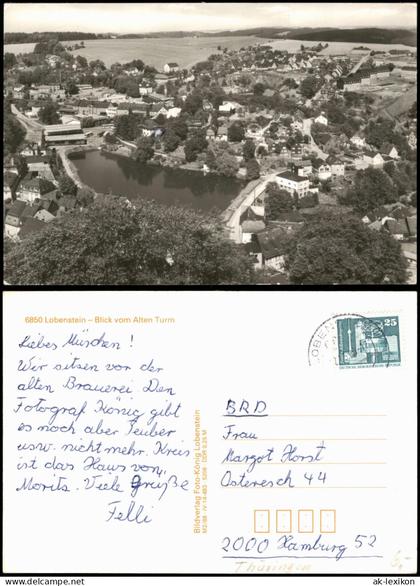 © www.ak-lexikon.com
6850 Lobenstein – Blick vom Alten Turm
Liebes Mäuschen!
Wir sitzen vor der
alten Brauerei. Den
Fotograf König gibt
es noch aber Teuber
usw. nicht mehr. Kreis
ist das Haus von
Moritz. Viele Grüße
Felli
Bildverlag Foto-König Lobenstein
LOBEN
25
BRD
Frau
Margot Horst
Osteresch 44
2000 Hamburg 52
Thüringen